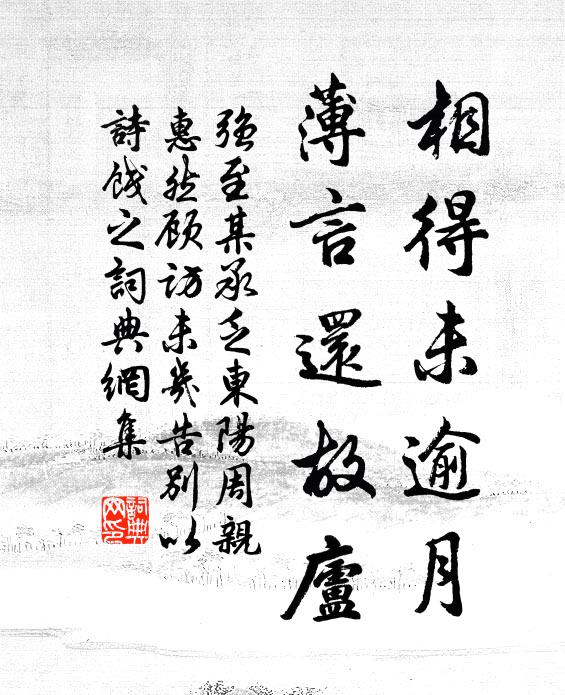 相得未逾月
薄言還故廬
強至某承乏東陽周親
惠然顾访未幾告别以
詩餞之詞典網集
詞典
网印